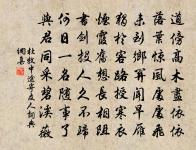 道傍高木盡依依
落葉驚風處處飛
未到鄉關聞早雁
獨於客路授寒衣
煙霞舊想長相阻
書劍投人久不歸
何日一名隨事了
與君同采碧溪薇
杜牧中途寄友人詞典
網集